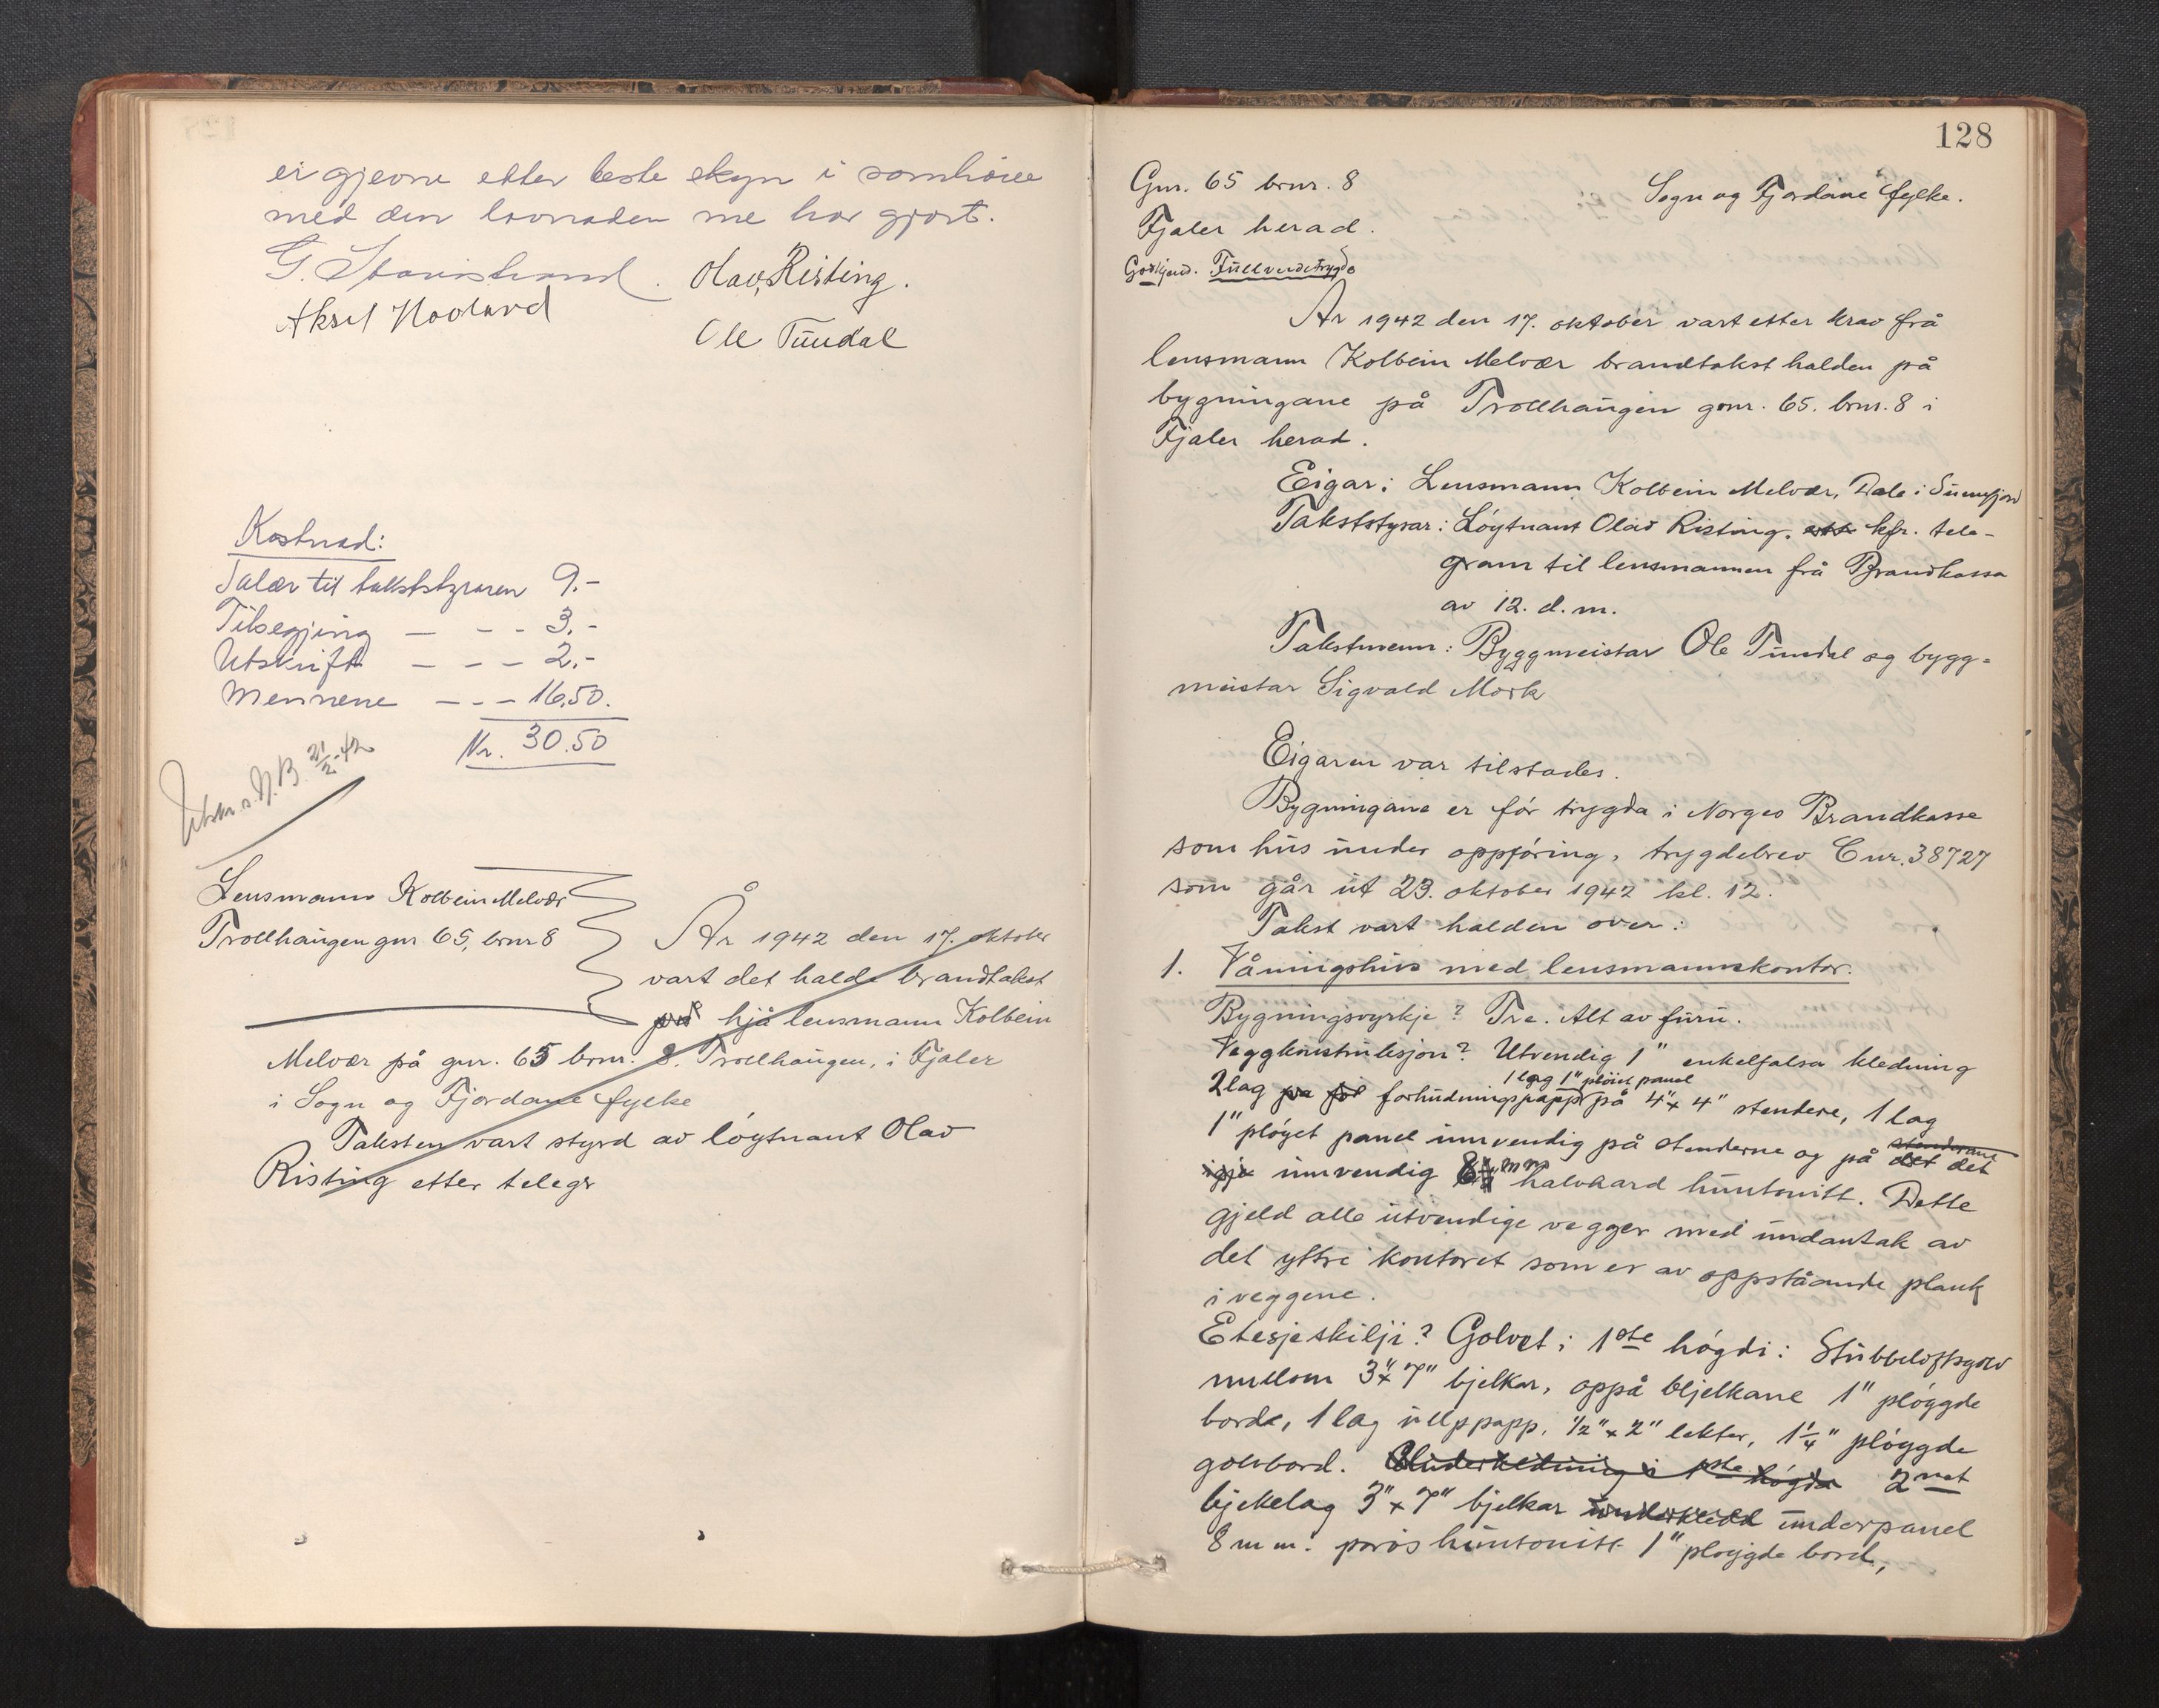 ei gjevne etter beste skyn i samhøve
med den lovnaden me har gjort.
G. Olav Risting.
Aksel Ole Tundal
Kostnad:
Salær til takststyraren 9.-
Tilsegjing — - - 3.-
Utskrift — — — 2.-
Mennene — - - 16,50.
Kr. 30.50
Utskr. s. N. B. 21/2-42
Lensmann Kolbein Melvær
Trollhaugen gnr 65, brnr 8
År 1942 den 17. oktober
vart det halde brandtakst
hjå lensmann Kolbein
Melvær på gnr. 65 brnr. 8. Trollhaugen, i Fjaler
i Sogn og Fjordane fylke
Taksten vart styrd av løytnant Olav
Risting etter telegr
128
Gnr. 65 brnr. 8
Sogn og Fjordane fylke.
Fjaler herad.
Godkjend. Fullverdetrygd
År 1942 den 17. oktober vart etter krav frå
lensmann Kolbein Melvær brandtakst halden på
bygningane på Trollhaugen gnr. 65. brnr. 8 i
Fjaler herad.
Eigar: Lensmann Kolbein Melvær, Dale i Sunnfjord
Takststyrar: Løytnant Olav Risting. ett kfr. tele-
gram til lensmannen frå Brandkassa
av 12. d.m.
Takstmenn: Byggmeistar Ole Tundal og bygg=
meistar Sigvald Mork
Eigaren var tilstades.
Bygningane er før trygda i Norges Brandkasse
som hus under oppføring, trygdebrev C nr. 38727
som går ut 23. oktober 1942 kl. 12.
Takst vart halden over:
1. Våningshus med lensmannskontor.
Bygningsvyrkje? Tre. Alt av furu.
Veggkonstruksjon? Utvendig 1" enkelfalsa kledning
1 lag 1" pløiet panel
2 lag forhudningspapp på 4"x4" stendere, 1 lag
1" pløyet panel innvendig på stenderne og på det det
stenderane
innvendig 8 mm halvhard huntonitt. Dette
gjeld alle utvendige vegger med undantak av
det yttre kontoret som er av oppståande plank
i veggene.
Etesjeskilje? Golvet i 1ste høgdi: Stubbeloftsgolv
mellom 3"x7" bjelkar, oppå bljelkane 1" pløggde
bord, 1 lag ullpapp, 1/2"x2" lekter, 1 1/4" pløggde
golvbord. Underkledning i 1ste høgda 2net
bjekelag 3"x7" bjelkar underkledd underpanel
8 mm. porøs huntonitt 1" pløygde bord,